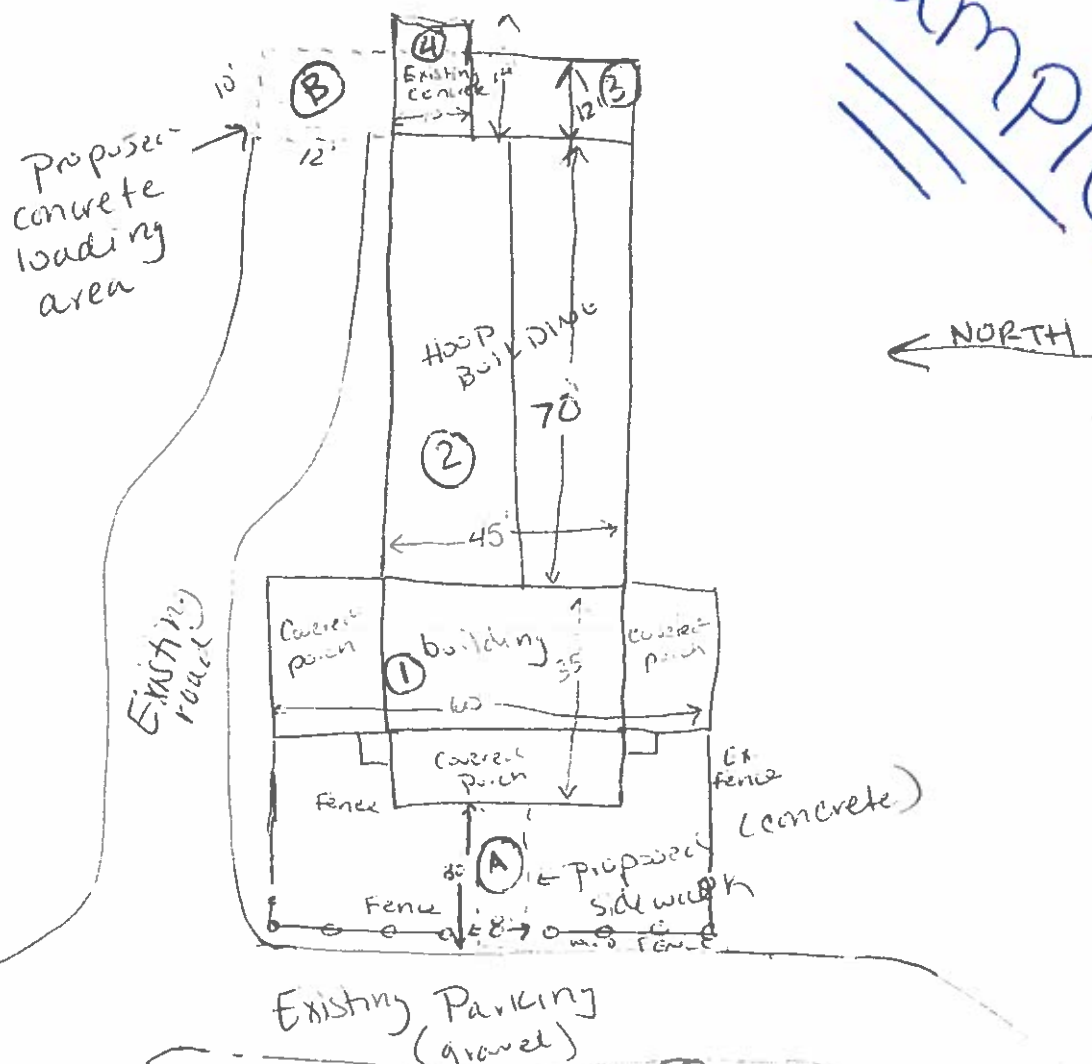 4
Existing
Concrete
14'
12'
3
B
10'
12'
Proposed
concrete
loading
area
NORTH
HOOP
BUILDING
70'
2
45'
Existing
road
Covered
porch
1
building
35
Covered
porch
60
Covered
porch
Fence
Ex
fence
(concrete)
A
← Proposed
sidewalk
Fence
8
Existing Parking
(gravel)